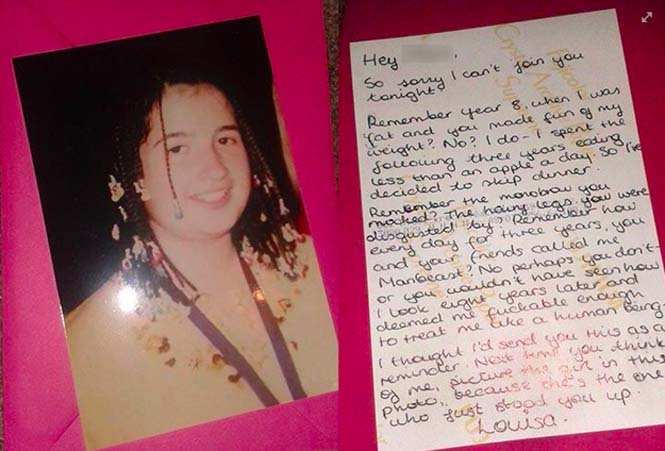 Hey ,
So sorry I can't join you
tonight.
Remember year 8, when I was
fat and you made fun of my
weight? No? I do - I spent the
following three years eating
less than an apple a day. So I've
decided to skip dinner.
Remember the monobrow you
mocked? The hairy legs you were
disgusted by? Remember how
every day for three years, you
and your friends called me
Manbeast? No perhaps you don't -
or you wouldn't have seen how
I look eight years later and
deemed me fuckable enough
to treat me like a human being.
I thought I'd send you this as a
reminder. Next time you think
of me, picture the girl in this
photo, because she's the one
who just stood you up.
Louisa.